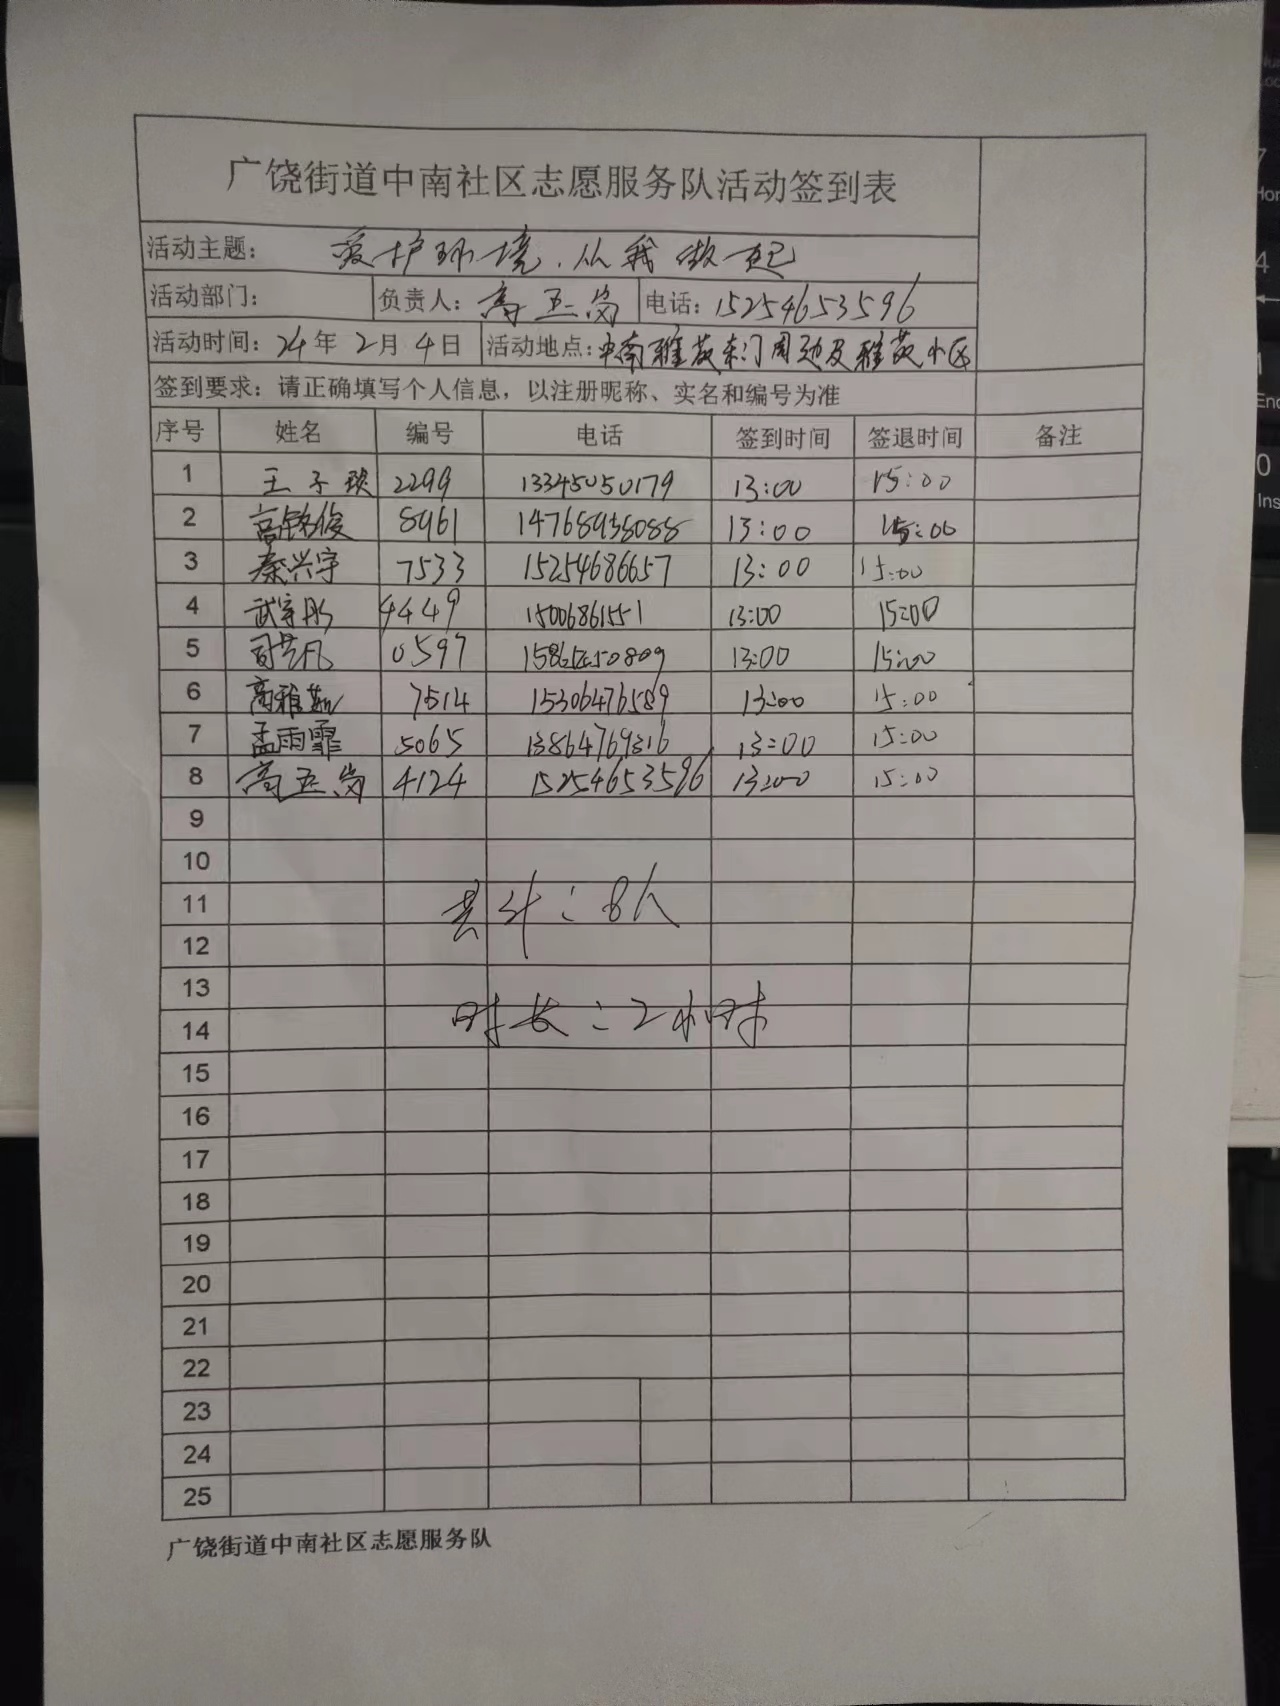 广饶街道中南社区志愿服务队活动签到表
活动主题： 爱护环境.从我做起
活动部门： 负责人：高玉岗 电话：15254653596
活动时间：24年2月4日 活动地点：中南雅苑东门周边及雅苑小区
签到要求：请正确填写个人信息，以注册昵称、实名和编号为准
序号 姓名 编号 电话 签到时间 签退时间 备注
1 王子 2299 13345050179 13:00 15:00
2 高铭俊 8961 14768938088 13:00 15:00
3 秦兴宇 7533 15254686657 13:00 15:00
4 武宇彤 4449 15006861551 13:00 15:00
5 司艺凡 0597 13:00 15:00
6 高雅茹 7514 15306476589 13:00 15:00
7 孟雨霏 5065 13864769316 13:00 15:00
8 高玉岗 4124 15254653596 13:00 15:00
9
10
11
共计：8人
12
13
14
时长：2小时
15
16
17
18
19
20
21
22
23
24
25
广饶街道中南社区志愿服务队
7
Hom
4
1
End
0
Ins